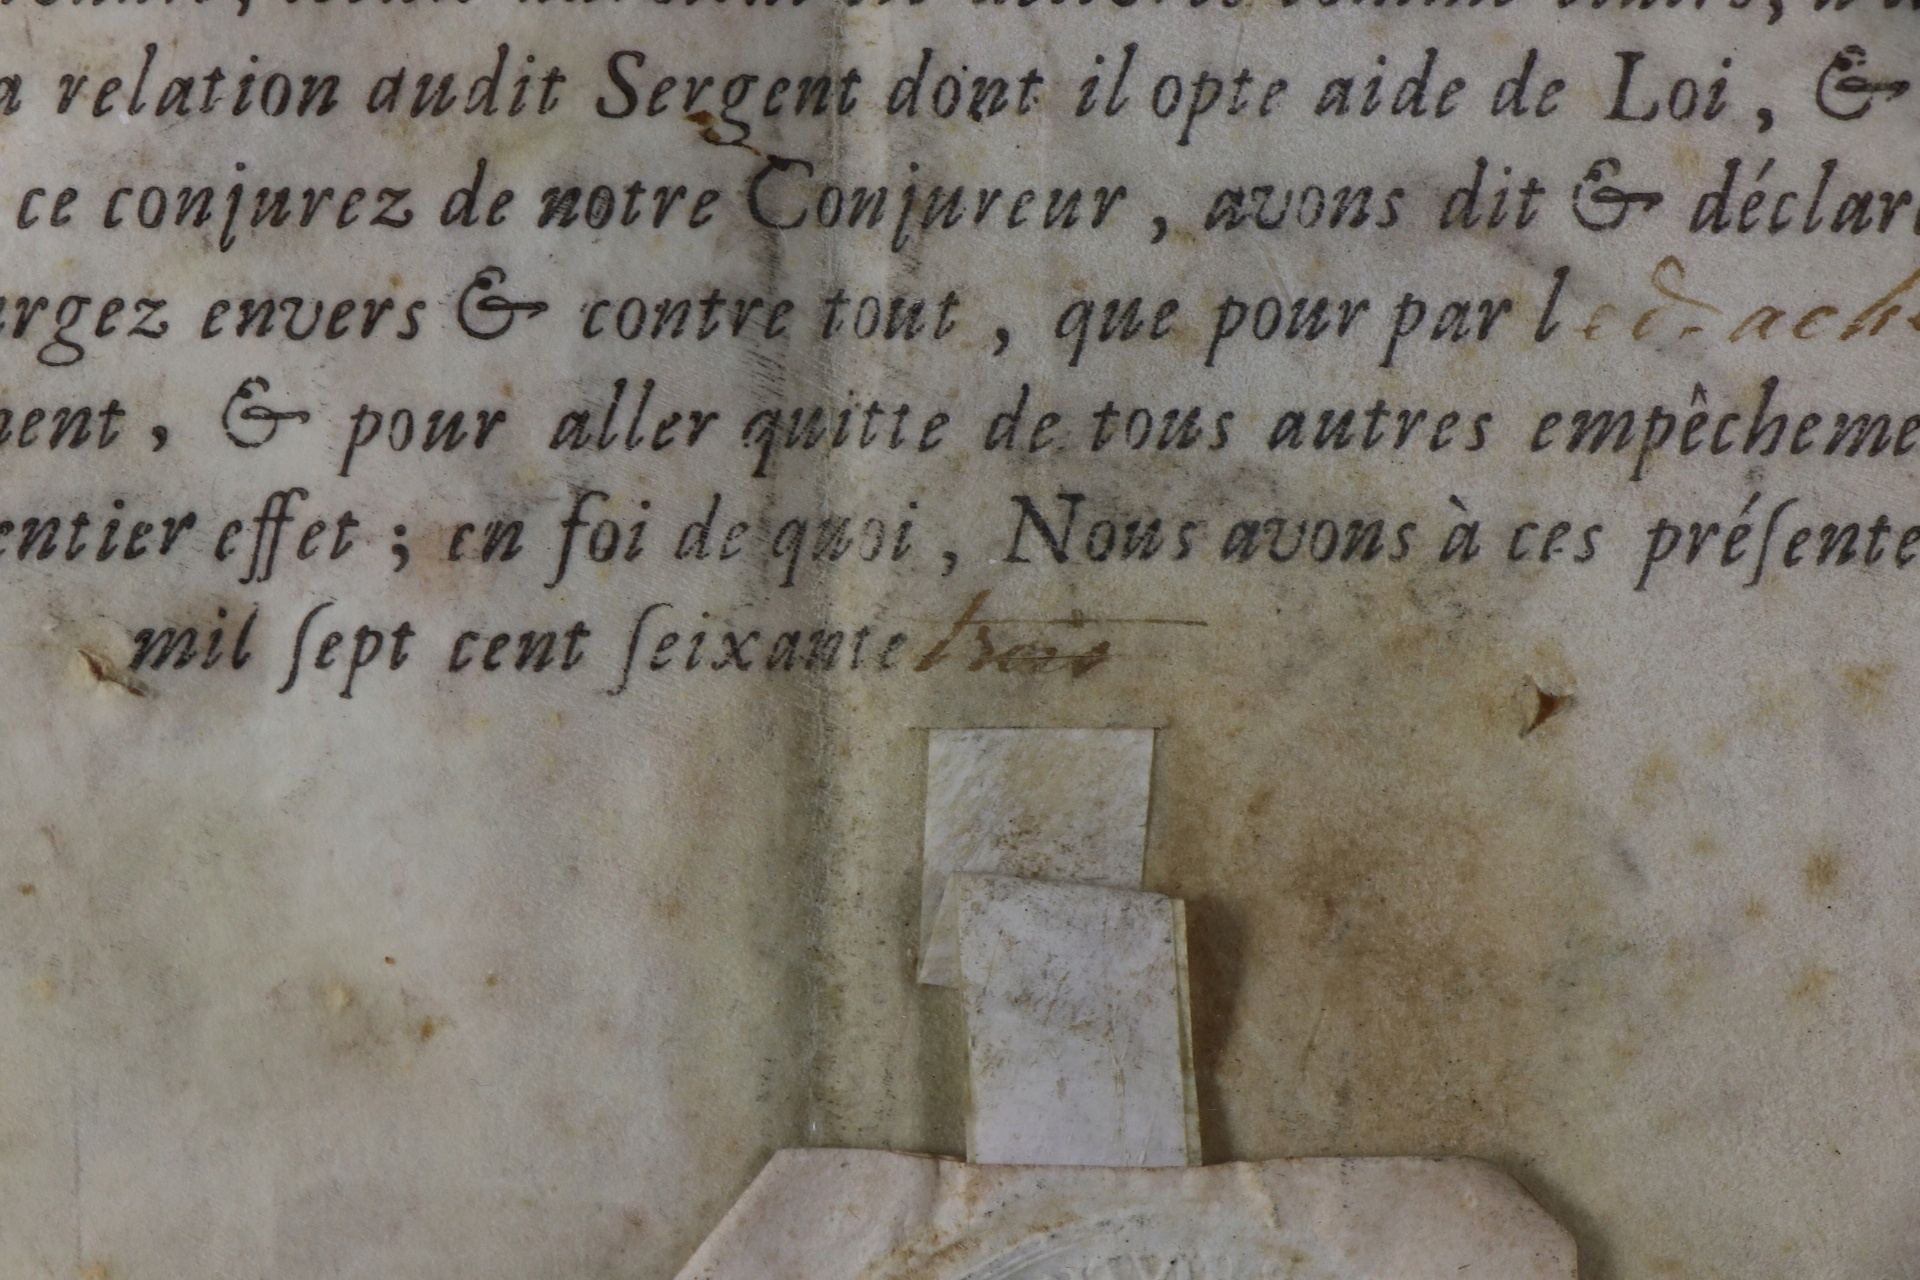 a relation audit Sergent dont il opte aide de Loi, &
ce conjurez de notre Conjureur, avons dit & déclar
rgez envers & contre tout, que pour par l
ent, & pour aller quitte de tous autres empêcheme
entier effet; en foi de quoi, Nous avons à ces préſente
mil ſept cent ſeixante trois